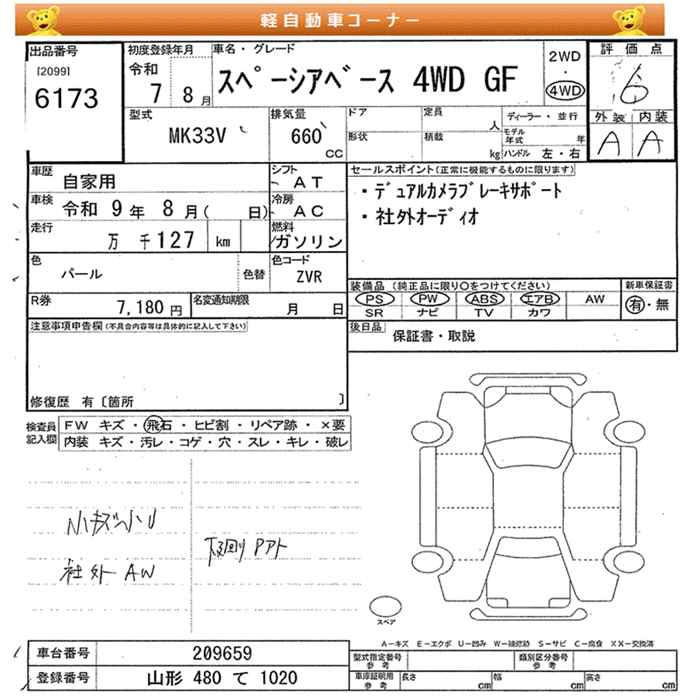 軽自動車コーナー
出品番号
[2099]
6173
初度登録年月
令和 7 8月
車名・グレード
スペーシアベース 4WD GF
2WD
・
4WD
評価点
6
外装 内装
A A
型式
MK33V
排気量
660 CC
ドア
形状
定員 人
積載 kg
ディーラー・並行
モデル年式 年
ハンドル 左・右
車歴
自家用
シフト
AT
車検
令和 9年 8月( 日)
冷房
AC
走行
万 千127 km
燃料
ガソリン
色
パール
色替
色コード
ZVR
R券
7,180 円
名変通知期限
月 日
セールスポイント(正常に機能するものに限ります)
・デュアルカメラブレーキサポート
・社外オーディオ
装備品 (純正品に限り○をつけてください)
新車保証書
PS PW ABS エアB AW
有・無
SR ナビ TV カワ
後日品
保証書・取説
注意事項申告欄(不具合内容等は具体的に記入して下さい)
修復歴 有〔箇所 〕
検査員記入欄
FW キズ・飛石・ヒビ割・リペア跡・×要
内装 キズ・汚レ・コゲ・穴・スレ・キレ・破レ
小キズヘコリ
社外 AW
下回り Pアト
スペア
A−キズ E−エクボ U−凹み W−補修跡 S−サビ C−腐食 XX−交換済
車台番号
209659
登録番号
山形 480 て 1020
型式指定番号
参考
類別区分番号
参考
車庫証明用
参考
長さ cm
幅 cm
高さ cm